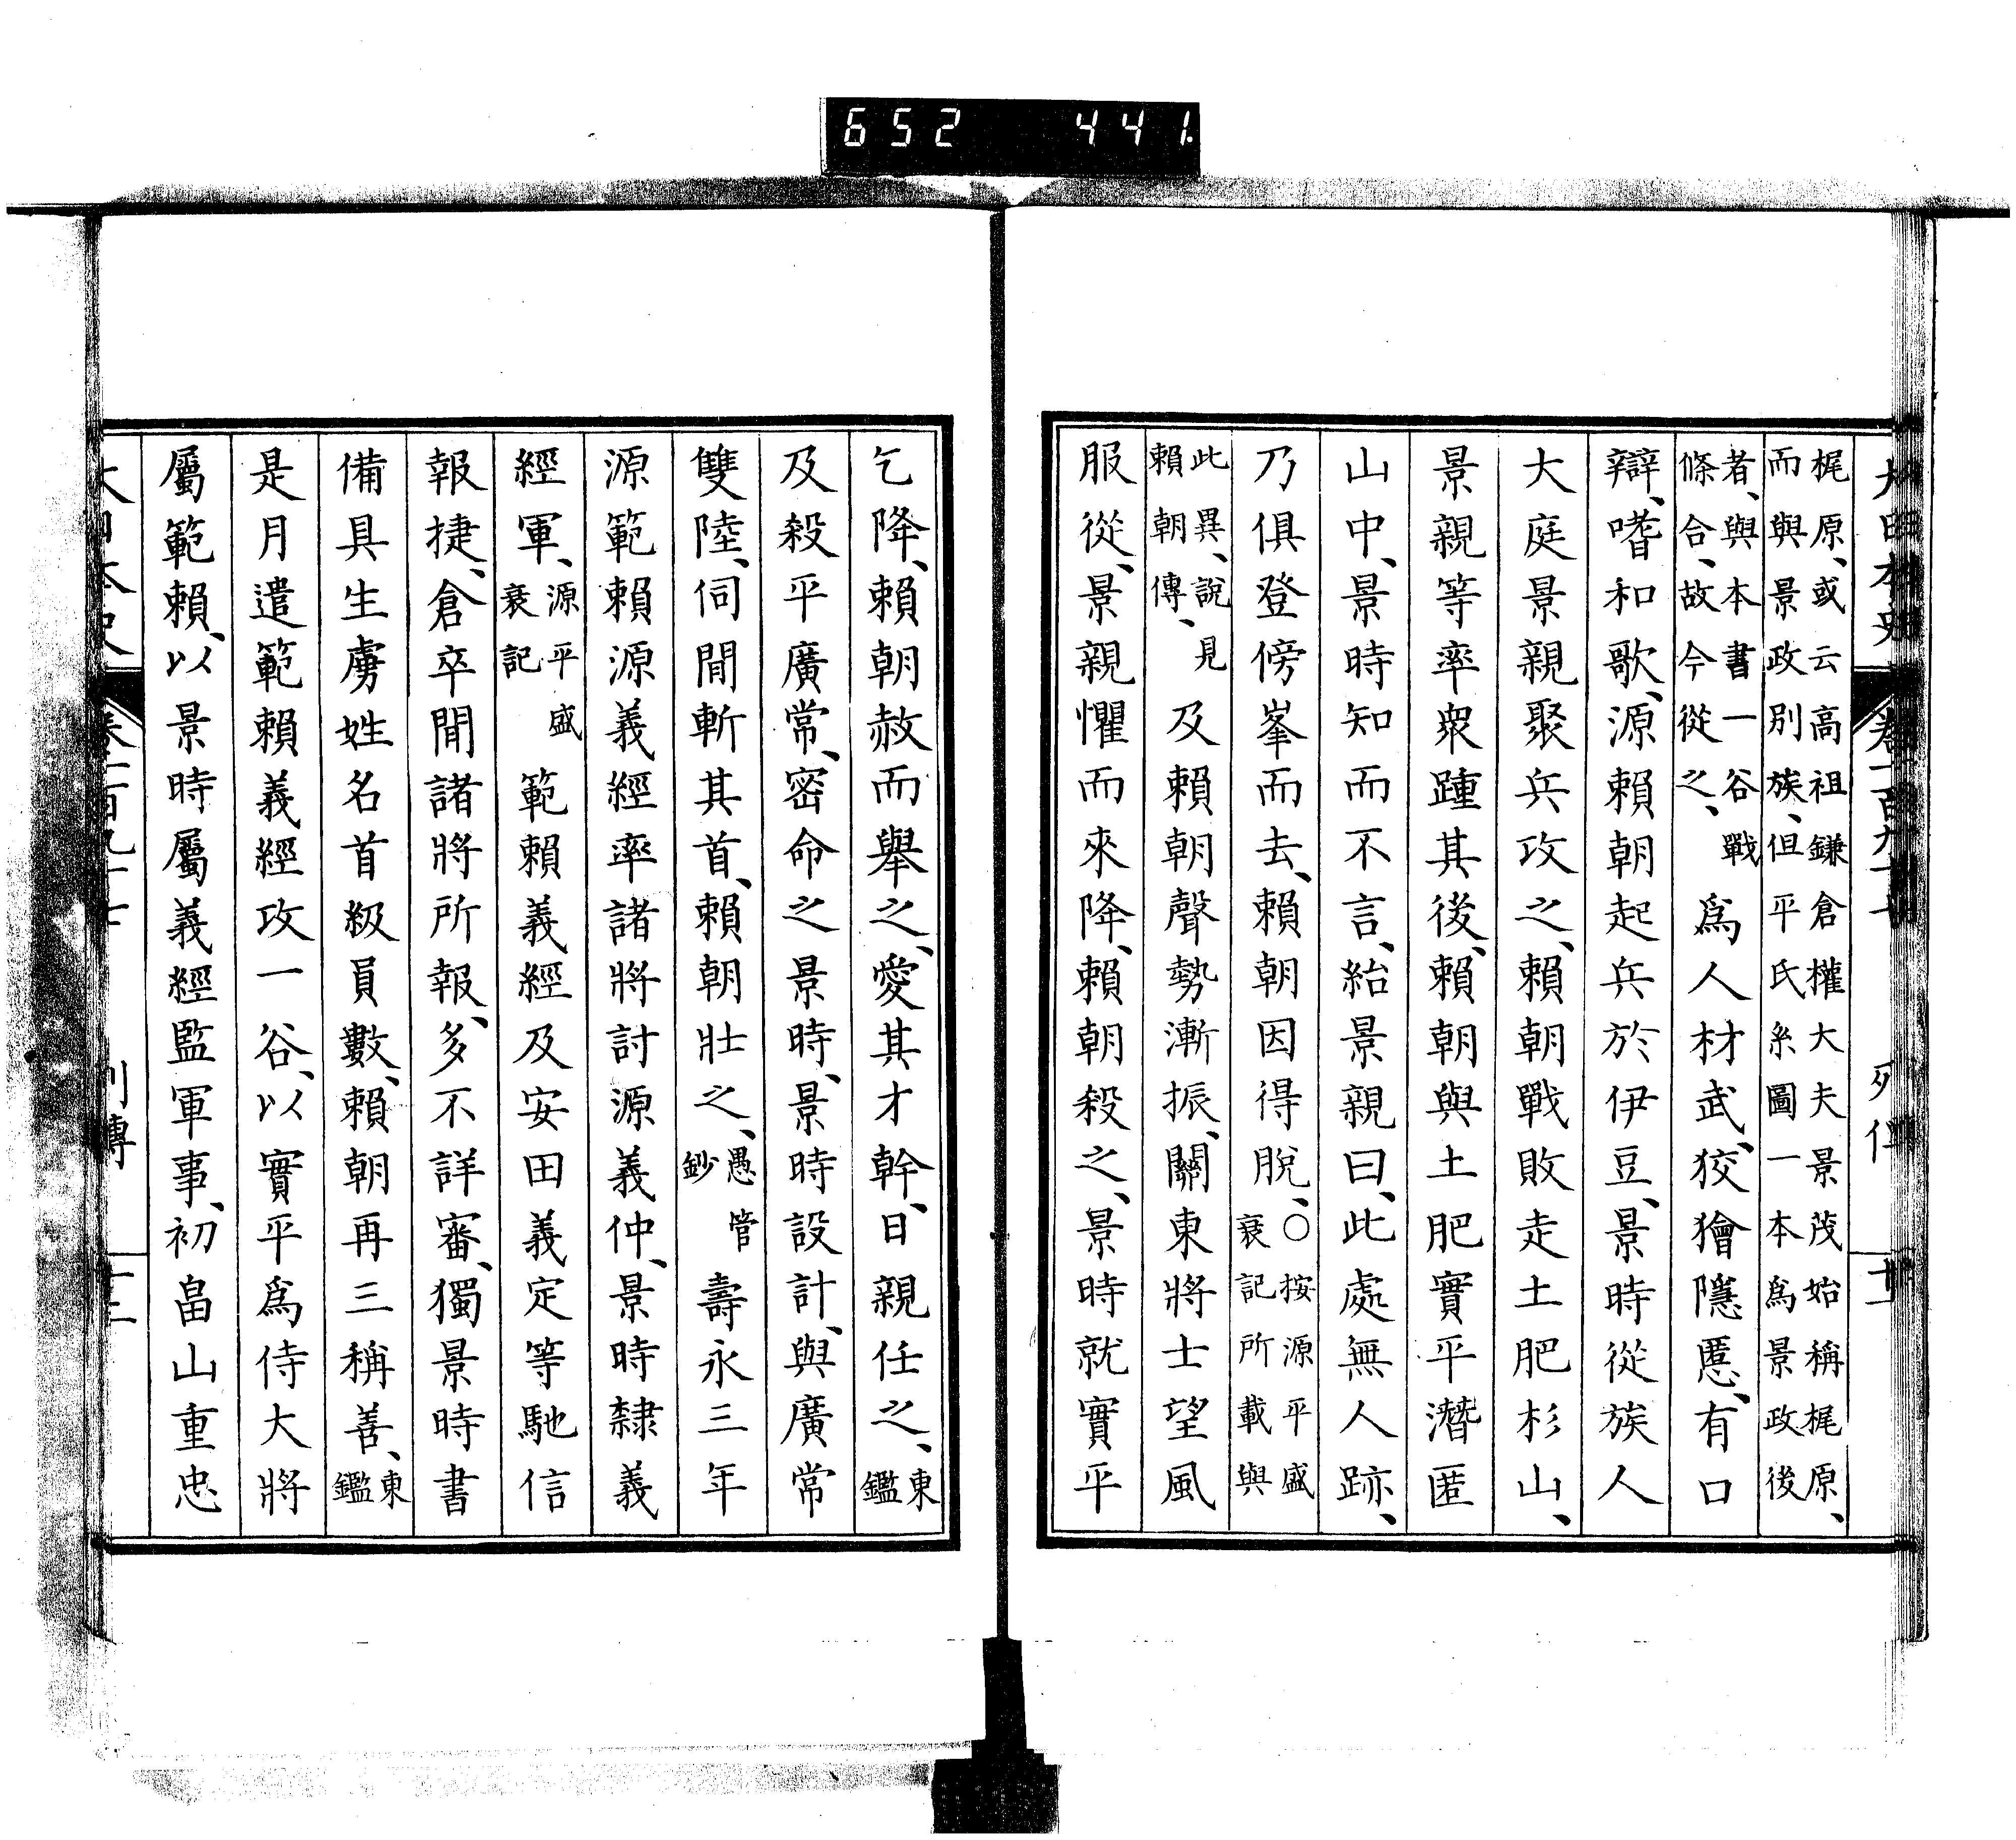 652 441.
梶原、或云高祖鎌倉權大夫景茂始稱梶原、
而與景政別族、但平氏系圖一本爲景政後
者、與本書一谷戰
條合、故今從之、
爲人材武、狡獪隱慝、有口
辯、嗜和歌、源賴朝起兵於伊豆、景時從族人
大庭景親聚兵攻之、賴朝戰敗走土肥杉山、
景親等率衆踵其後、賴朝與土肥實平潛匿
山中、景時知而不言、紿景親曰、此處無人跡、
乃俱登傍峯而去、賴朝因得脫、
○按源平盛
衰記所載與
此異、說見
賴朝傳、
及賴朝聲勢漸振、關東將士望風
服從、景親懼而來降、賴朝殺之、景時就實平
乞降、賴朝赦而舉之、愛其才幹、日親任之、
東
鑑
及殺平廣常、密命之景時、景時設計、與廣常
雙陸、伺間斬其首、賴朝壯之、
愚管
鈔
壽永三年
源範賴源義經率諸將討源義仲、景時隸義
經軍、
源平盛
衰記
範賴義經及安田義定等馳信
報捷、倉卒聞諸將所報、多不詳審、獨景時書
備具生虜姓名首級員數、賴朝再三稱善、
東
鑑
是月遣範賴義經攻一谷、以實平爲侍大將
屬範賴、以景時屬義經監軍事、初畠山重忠